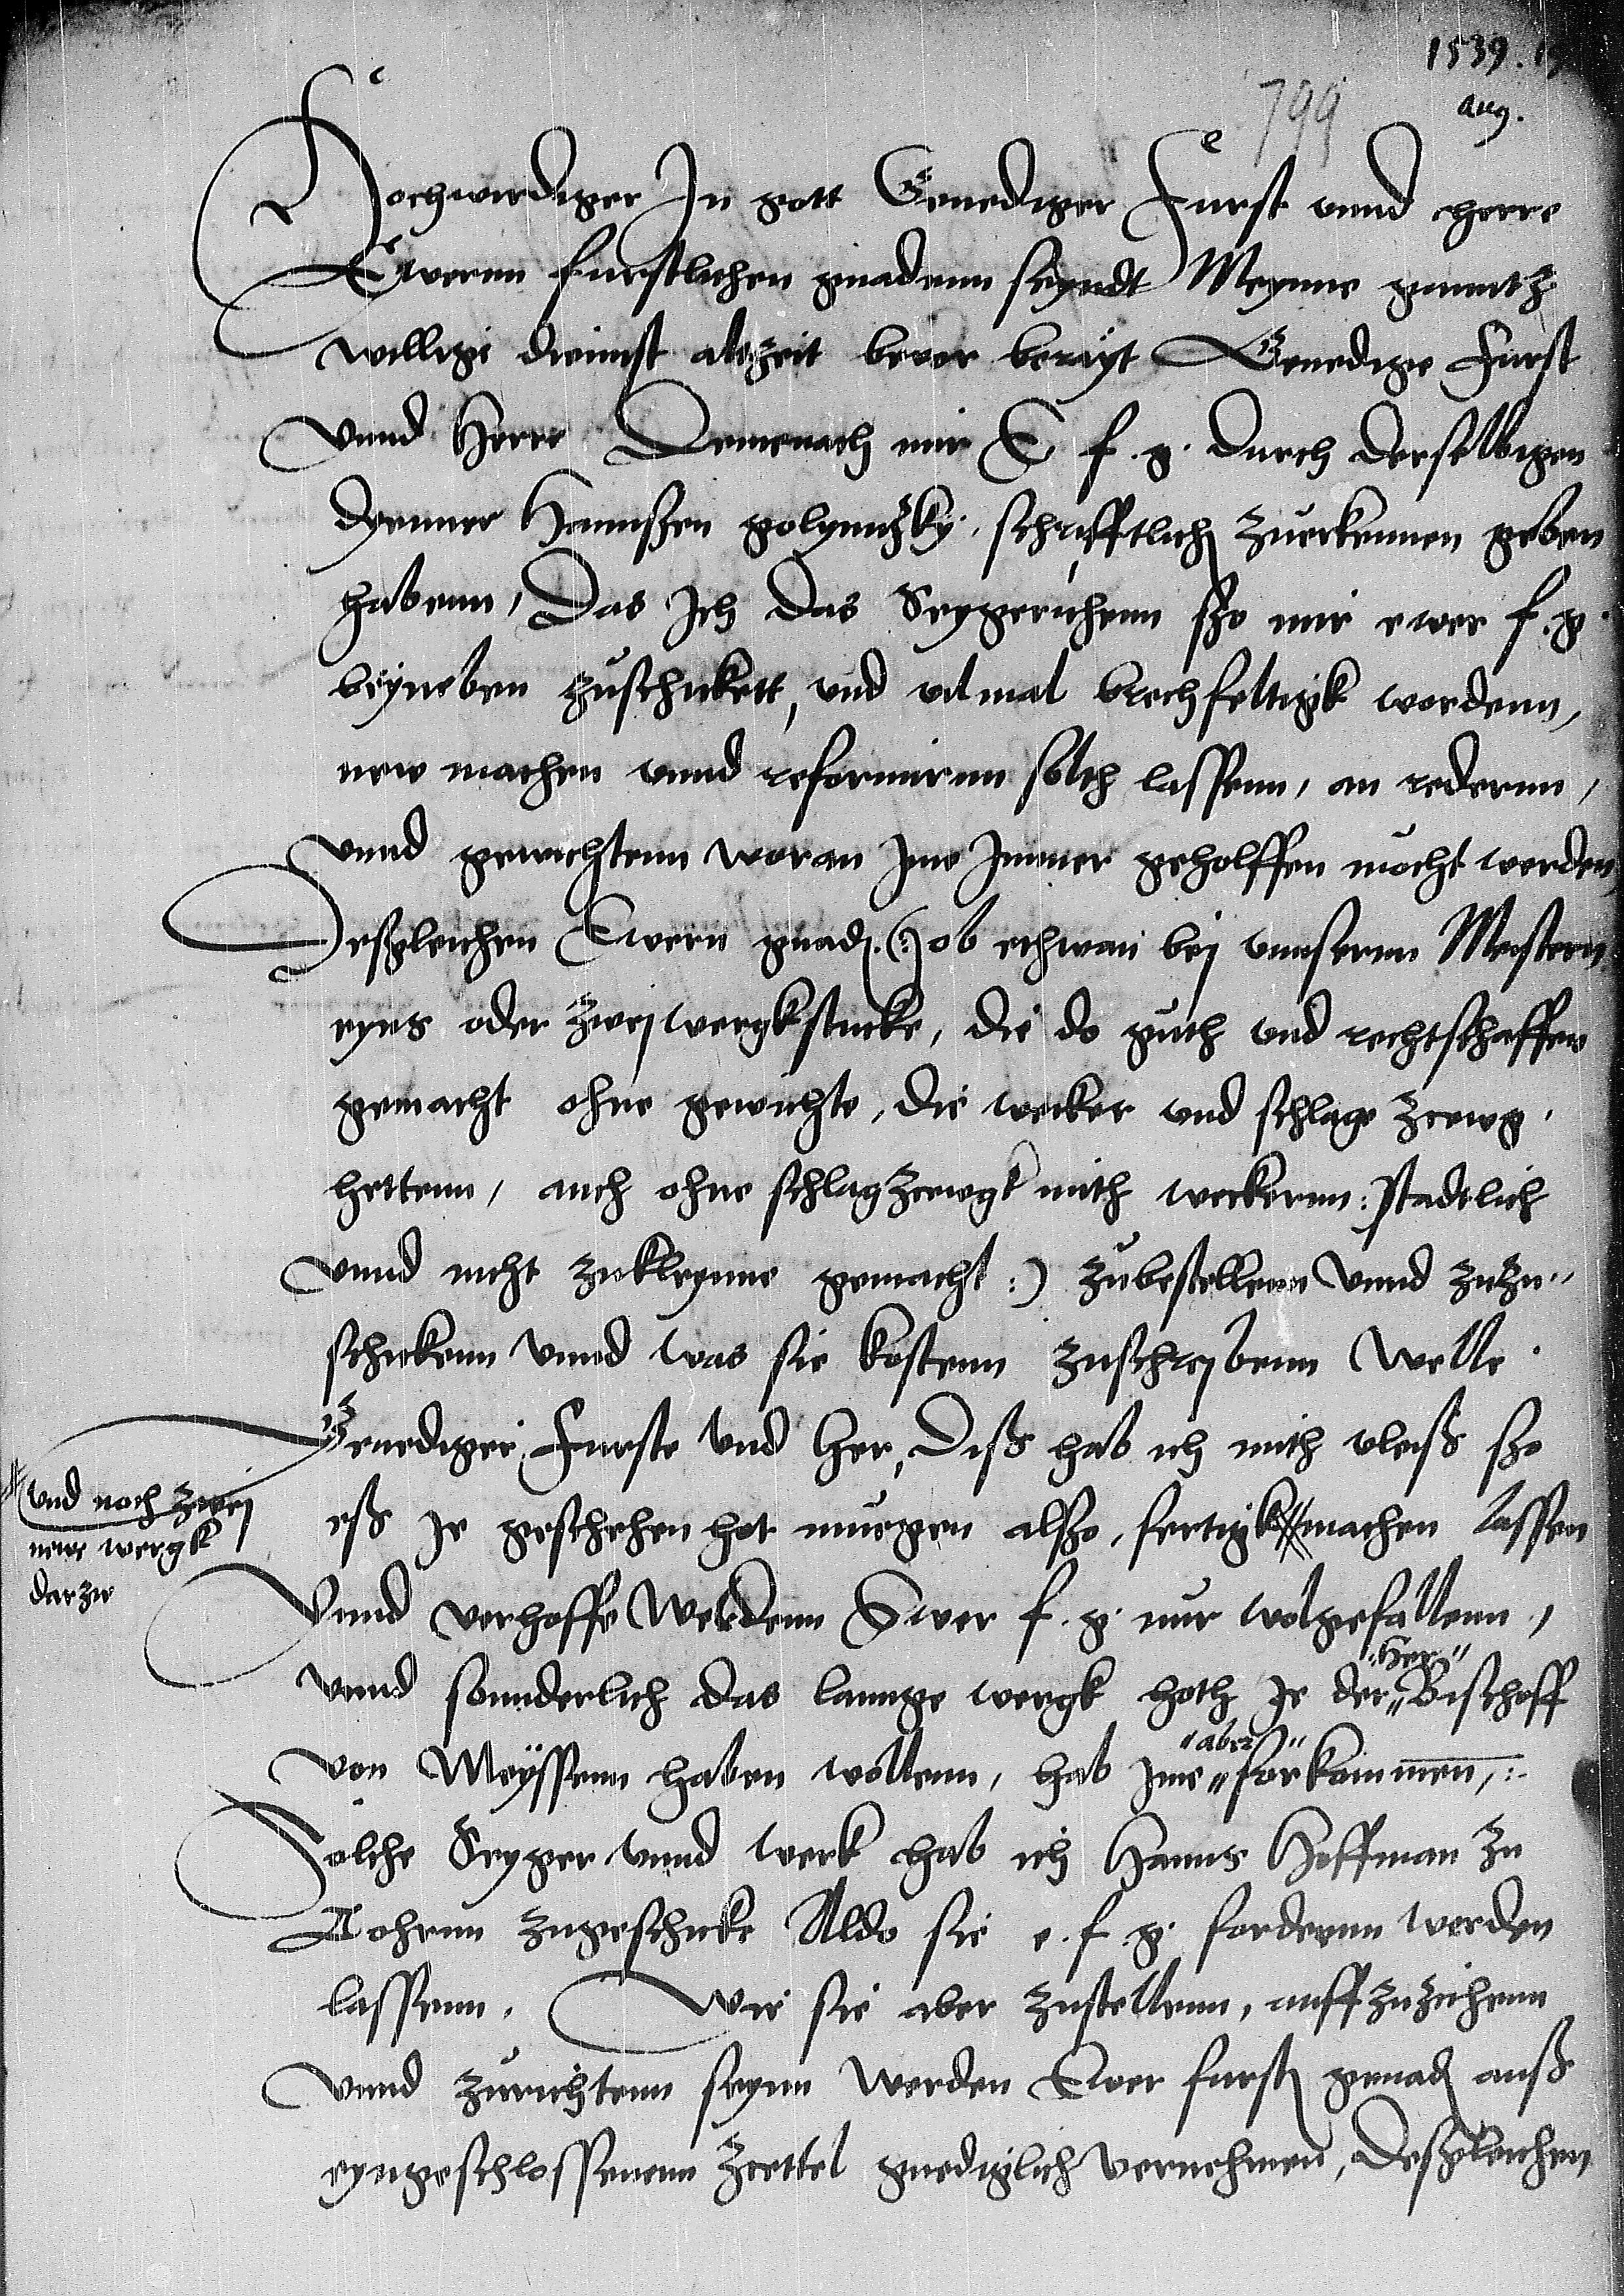 1539. 1
aug.
799
Hochwirdiger In gott Genediger Furst vnnd herre
Ewernn furstlichen gnadenn seyndt Meynne gannitz
willige diennst altzeit bevor berayt Genediger Furst
Vnnd Herre Demenach mir E f. g. durch derselbigen
dyenner Hannssen golynitzky schrifftlich zuerkennen geben
habenn, Das Ich das Seygerichenn szo mir ewer f. g.
beyneben zuschickett, vnd vilmal brechfeltigk wordenn,
new machen vnnd reformirnn solth lassenn, an redernn,
vnnd gewichtenn woran jme Immer geholffen mocht werden
Desgleichen Ewern gnad. (:) ob ethwan bej vnnsernn Meistern
eyns oder zwej wergkstucke, die do guth vnd rechtschaffen
gemacht ohne gewichte, die wecker vnd schlage zcewg
hettenn, auch ohne schlagzcewgk mith weckernn: stadtlich
vnnd nicht zukleynne gemacht :) zubestellenn Vnnd zuzu"
schickenn Vnnd was sie kostenn zuschreibenn Welle.
Genediger Furste Vnd Her, Diss hab ich mith vleiss szo
ess je geschehen hot muegen alszo, fertigk machen lassen
vnd noch zwej
new wergk
darzu
Vnnd verhoffe Werdenn Ewer f. g. nur wolgefallenn,
vnnd sonnderlich das lannge wergk hoth je der "Her" Bischoff
von Meyssenn haben wollenn, hab jme "aber" forkommen,:
Solche Seyger vnnd werk hab ich Hanns Hoffman zu
zugeschickt Aldo sie e. f. g. fordernn werden
lassenn. Wie sie aber zustellenn, auffzuzichenn
vnnd zurichtenn seynn werden Ewer furst gnad auss
eyngeschlossenenn Zcettel gnediglich vernehmen, Desgleichen